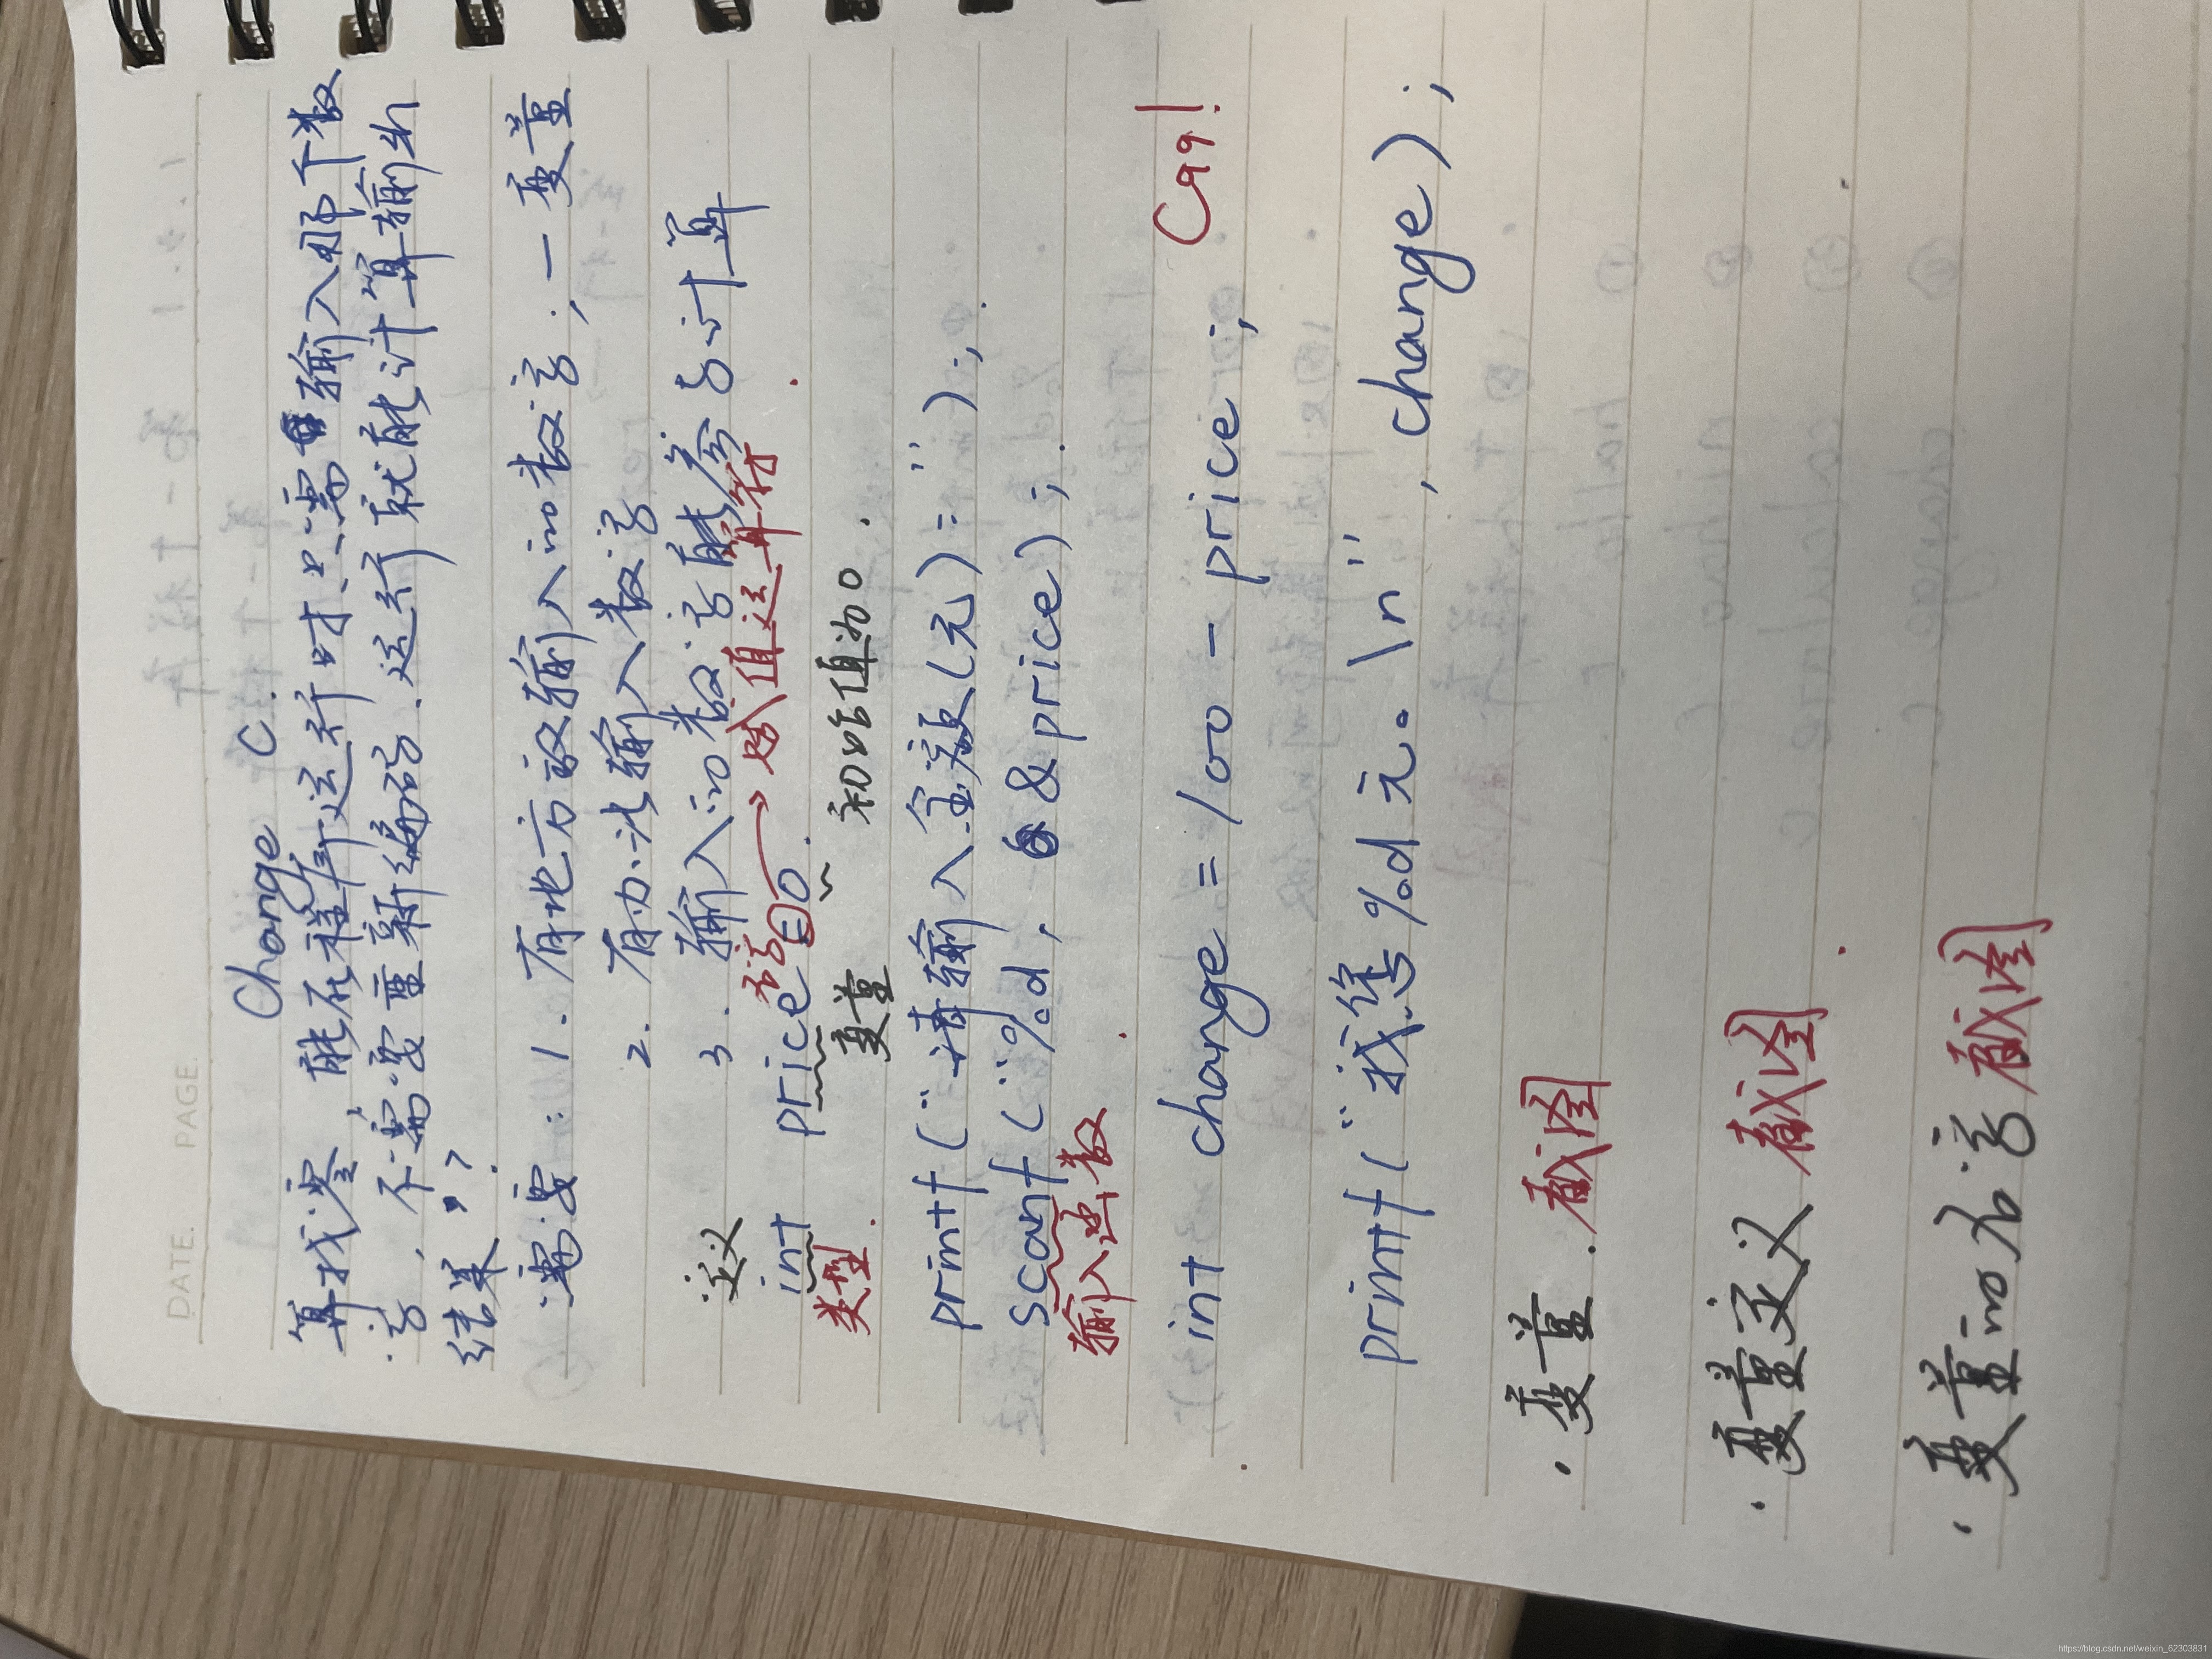 DATE. PAGE.
Change C.
算找零,能否程序运行时只需输入那个数
字,不需要重新编码.运行就能计算输出
结果??
需要: 1. 有地方放输入的数字;—变量
2. 有办法输入数字
3. 输入的数字能参与计算
定义
int price = 0.
赋值运算符
类型
变量
初始值为0.
printf("请输入金额(元)=");
scanf("%d, &price);
输入函数
int change = 100 - price;
C99!
printf("找您%d元。\n", change);
·变量.截图
·变量定义 截图
·变量的名字 截图
https://blog.csdn.net/weixin_62303831